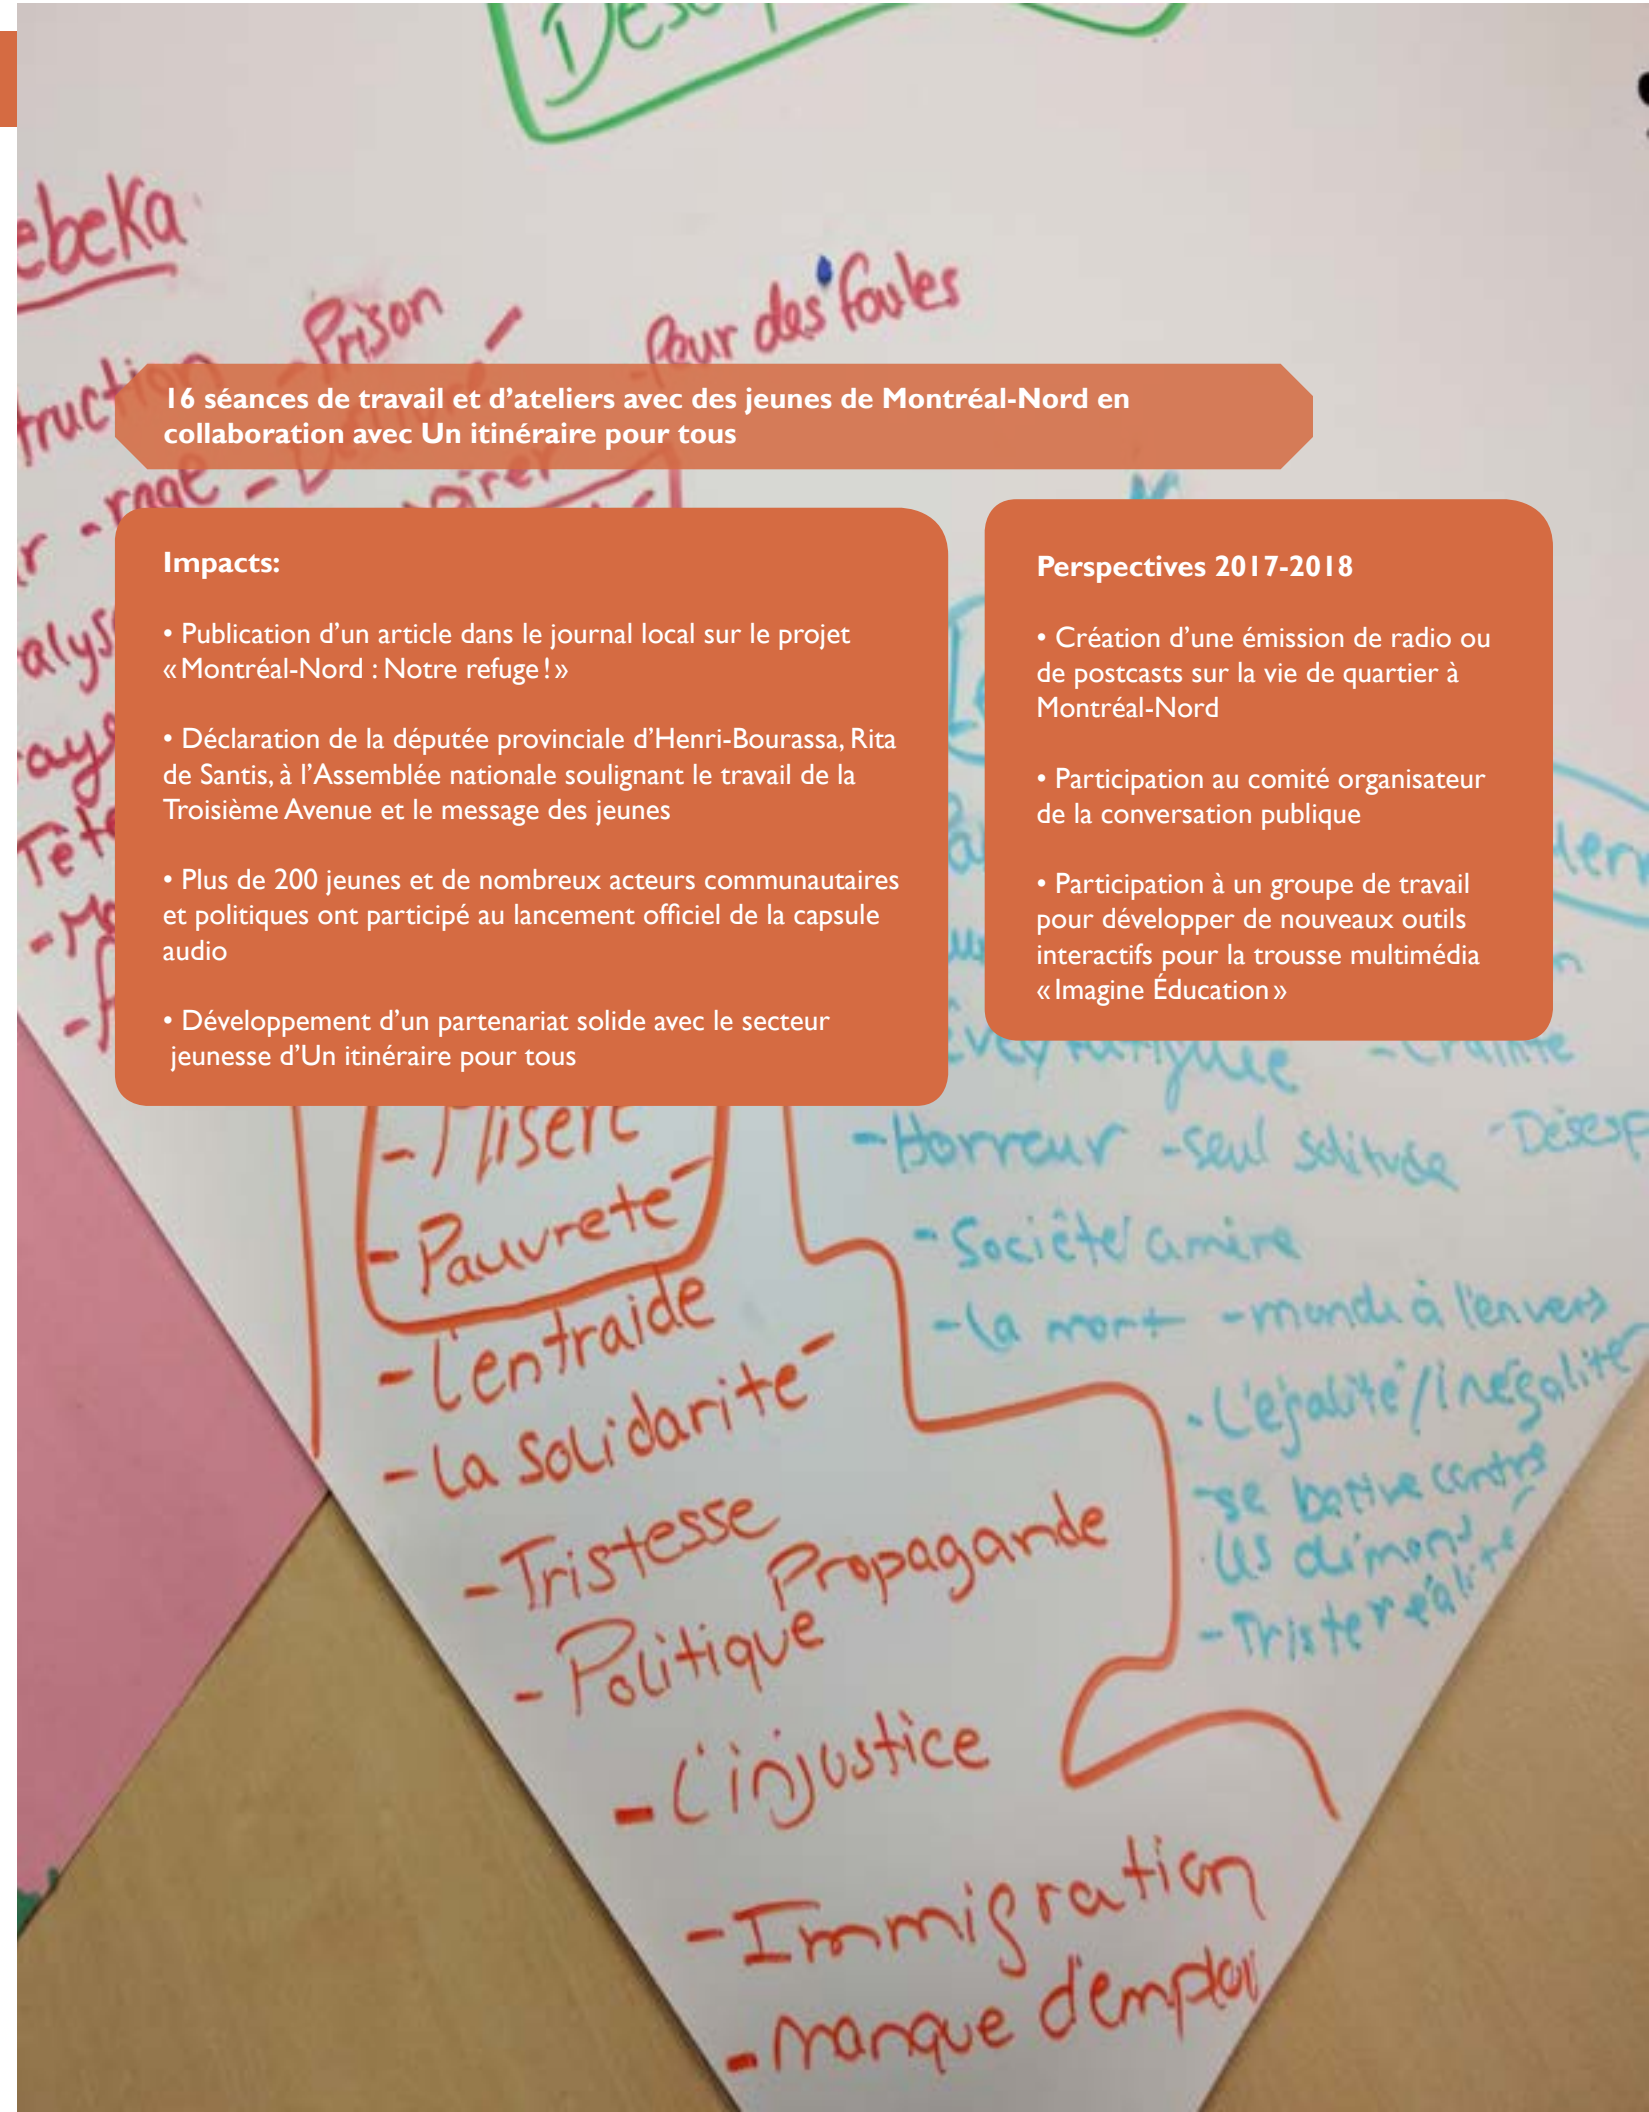 ebeka
- Prison -
Peur des foules
truction
- rage -
16 séances de travail et d'ateliers avec des jeunes de Montréal-Nord en
collaboration avec Un itinéraire pour tous
Impacts:
• Publication d'un article dans le journal local sur le projet
«Montréal-Nord : Notre refuge!»
• Déclaration de la députée provinciale d'Henri-Bourassa, Rita
de Santis, à l'Assemblée nationale soulignant le travail de la
Troisième Avenue et le message des jeunes
• Plus de 200 jeunes et de nombreux acteurs communautaires
et politiques ont participé au lancement officiel de la capsule
audio
• Développement d'un partenariat solide avec le secteur
jeunesse d'Un itinéraire pour tous
Perspectives 2017-2018
• Création d'une émission de radio ou
de postcasts sur la vie de quartier à
Montréal-Nord
• Participation au comité organisateur
de la conversation publique
• Participation à un groupe de travail
pour développer de nouveaux outils
interactifs pour la trousse multimédia
«Imagine Éducation»
- Crainte
- Horreur - seul solitude - Désesp
- Société amère
- la mort - monde à l'envers
- L'égalité/inégalité
- se battre contre
les démons
- Triste réalité
- Misère
- Pauvreté
- L'entraide
- La solidarité
- Tristesse
Propagande
- Politique
- L'injustice
- Immigration
- manque d'emploi